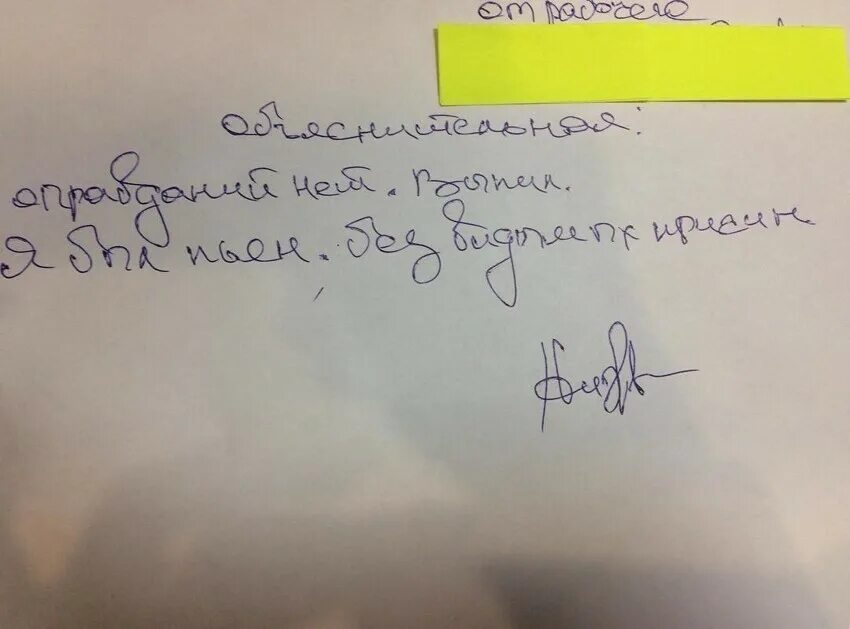 от рабочего
объяснительная:
оправданий нет. Выпил.
Я был пьен. без видымых причин